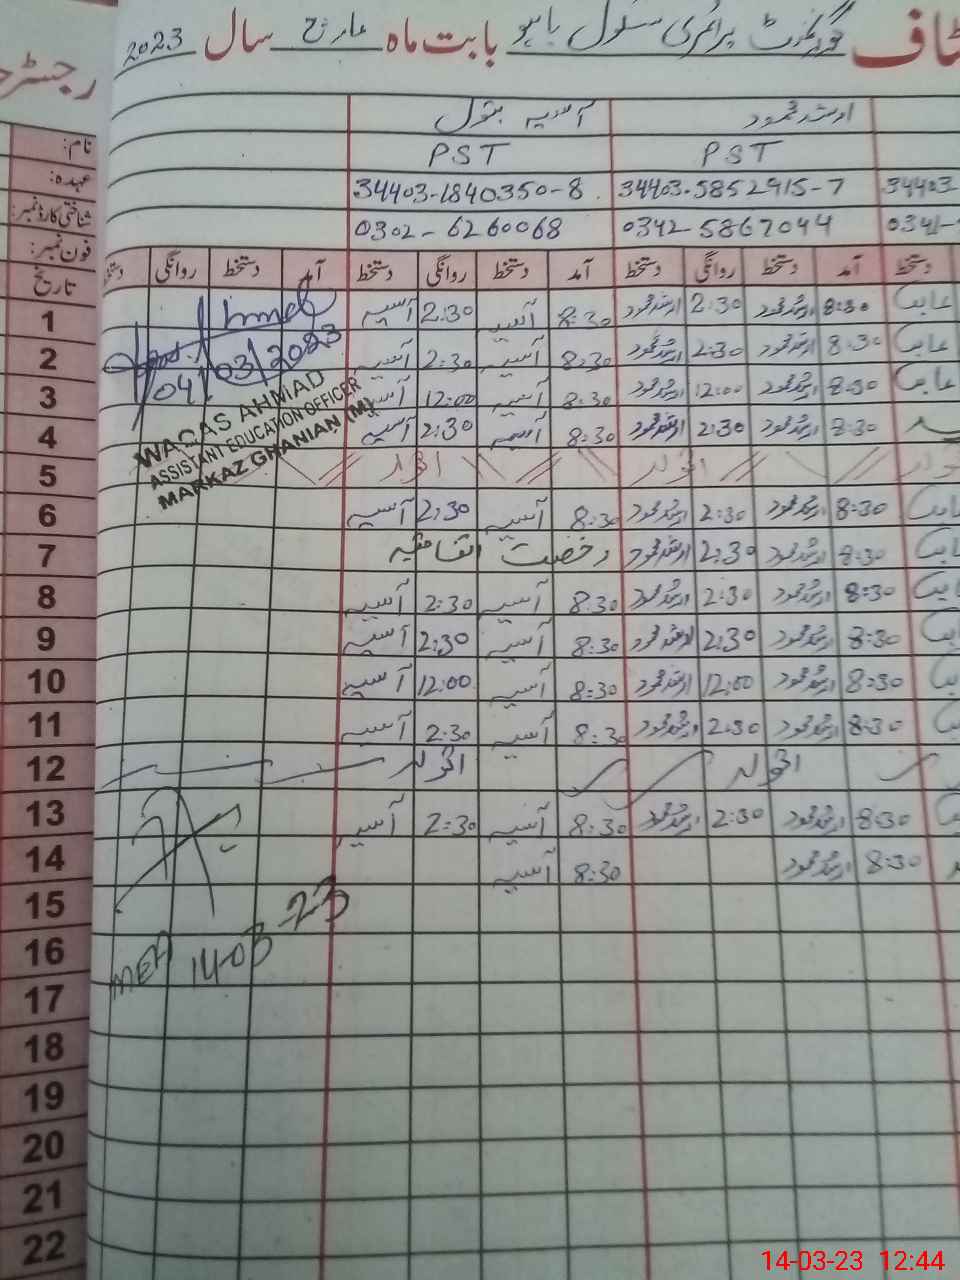 گورنمنٹ پرائمری سکول باہو بابت ماہ مارچ سال 2023
رجسٹر
ارشد محمود آسیہ بتول
نام:
PST PST
عہدہ:
34403-5852915-7 34403-1840350-8
شناختی کارڈ نمبر:
0342-5867044 0302-6260068
فون نمبر:
دستخط آمد دستخط روانگی دستخط آمد دستخط روانگی دستخط آمد دستخط روانگی
تاریخ
1 8:30 ارشد محمود 2:30 ارشد محمود 8:30 آسیہ 2:30 آسیہ
2 8:30 ارشد محمود 2:30 ارشد محمود 8:30 آسیہ 2:30 آسیہ
04/03/2023
3 8:30 ارشد محمود 12:00 ارشد محمود 8:30 آسیہ 12:00 آسیہ
4 8:30 ارشد محمود 2:30 ارشد محمود 8:30 آسیہ 2:30 آسیہ
WAQAS AHMAD
ASSISTANT EDUCATION OFFICER
MARKAZ GHANIAN (M)
5 اتوار اتوار
6 8:30 ارشد محمود 2:30 ارشد محمود 8:30 آسیہ 2:30 آسیہ
7 8:30 ارشد محمود 2:30 ارشد محمود رخصت اتفاقیہ
8 8:30 ارشد محمود 2:30 ارشد محمود 8:30 آسیہ 2:30 آسیہ
9 8:30 ارشد محمود 2:30 ارشد محمود 8:30 آسیہ 2:30 آسیہ
10 8:30 ارشد محمود 12:00 ارشد محمود 8:30 آسیہ 12:00 آسیہ
11 8:30 ارشد محمود 2:30 ارشد محمود 8:30 آسیہ 2:30 آسیہ
12 اتوار اتوار
13 8:30 ارشد محمود 2:30 ارشد محمود 8:30 آسیہ 2:30 آسیہ
14 8:30 ارشد محمود 8:30 آسیہ
15
MEA 14-03-23
16
17
18
19
20
21
22
14-03-23 12:44